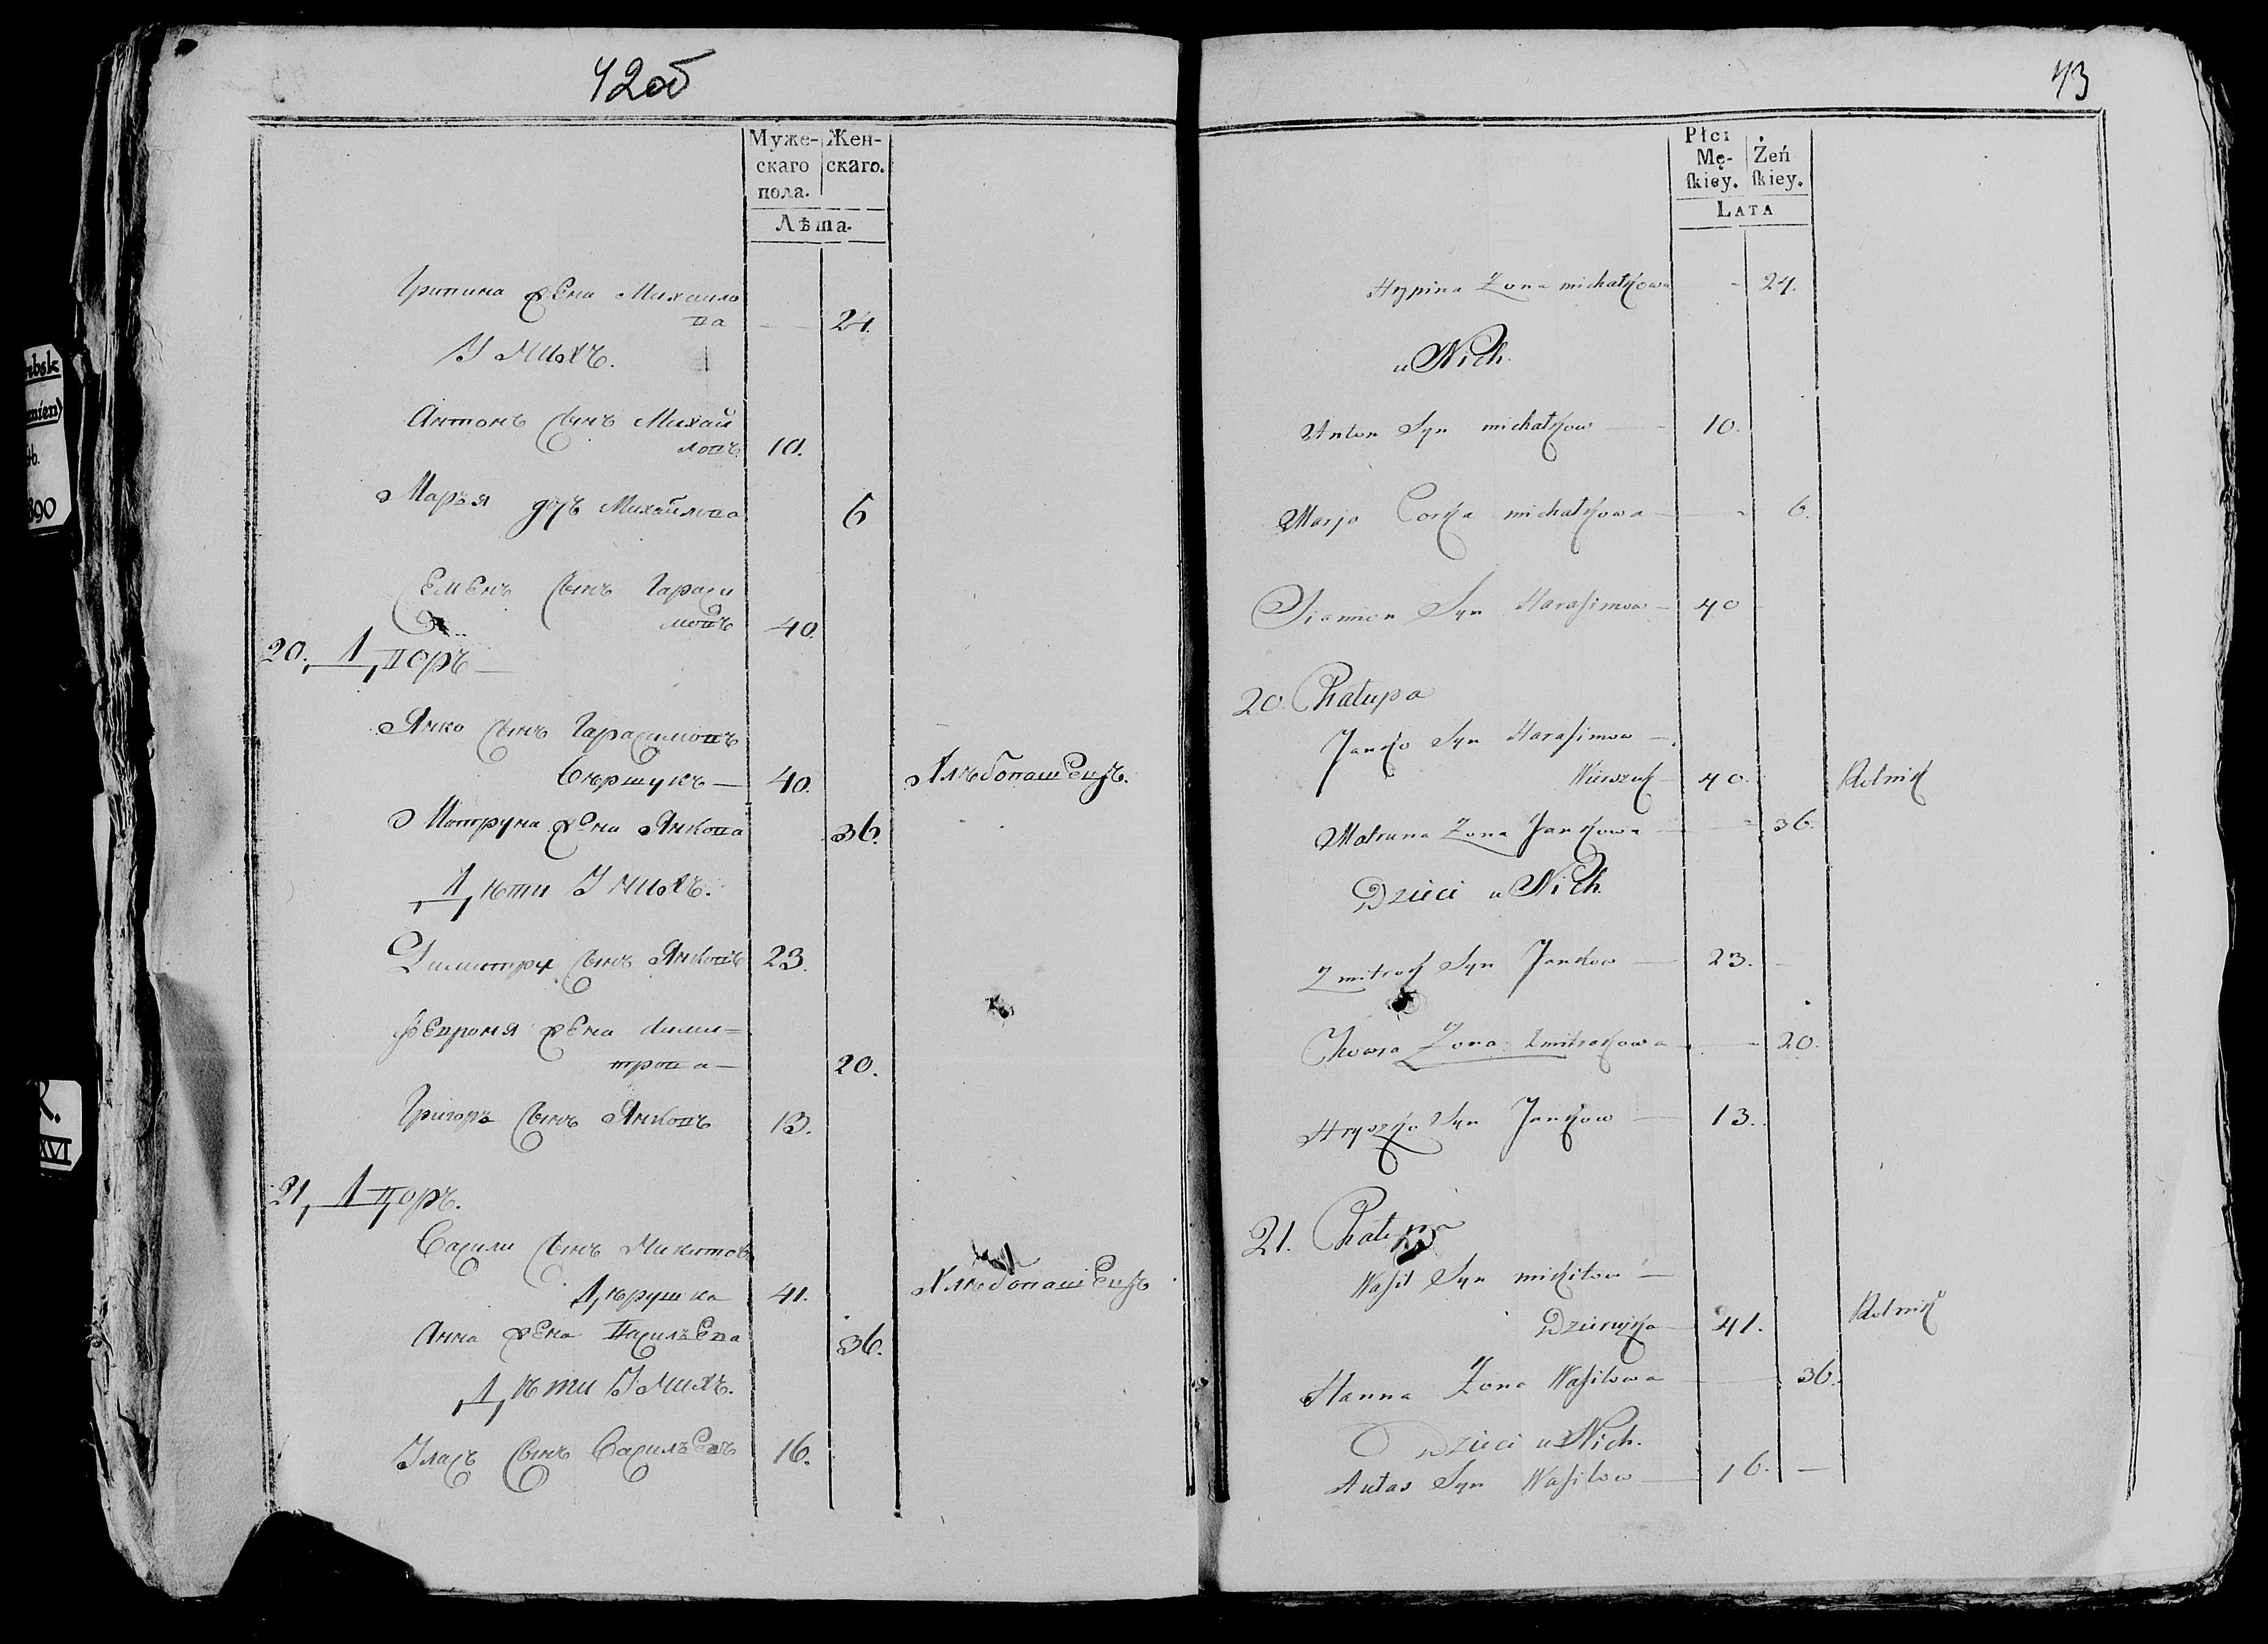 42об
Муже- Жен-
скаго скаго.
пола.
Лѣта.
Грипина жена Михаило
ва — 24.
У нихъ.
Антонъ сынъ Михай
ловъ 10.
Марья дочь Михайлова 6
Семенъ сынъ Гараси
мовъ 40.
20. Дворъ —
Янко сынъ Гарасимовъ
40. Хлѣбопашецъ.
Матруна жена Янкова 36.
Дѣти У нихъ.
Димитри сынъ Янковъ 23.
Февроня жена Дими=
трова — 20.
Григоръ сынъ Янковъ 13.
21, Дворъ.
Васили сынъ Микитовъ
Дѣрушка 41. Хлѣбопашецъ
Анна жена Васильева 36.
Дѣти У нихъ.
сынъ Васильевъ 16.
43
Płci
Mę- Żeń
ſkiey. ſkiey.
LATA
Hrypina Zona michałkowa - 24.
u Nich.
Anton Syn michałkow — 10.
Marja Corka michałkowa — - 6.
Siamion Syn Haraſimow — 40
20. Chałupa
Janko Syn Haraſimow —
40. Rolnik
Matruna Zona Jankowa — 36.
Dzieci u Nich.
Zmitrok Syn Jankow — 23. -
Zona Zmitrokowa - — 20.
Hryszko Syn Jankow — 13.
21. Chałupa
Waſil Syn mikitow —
Dzieruszka — 41. Rolnik
Hanna Zona Waſilowa — 36.
Dzieci u Nich.
Syn Waſilow — 16. —